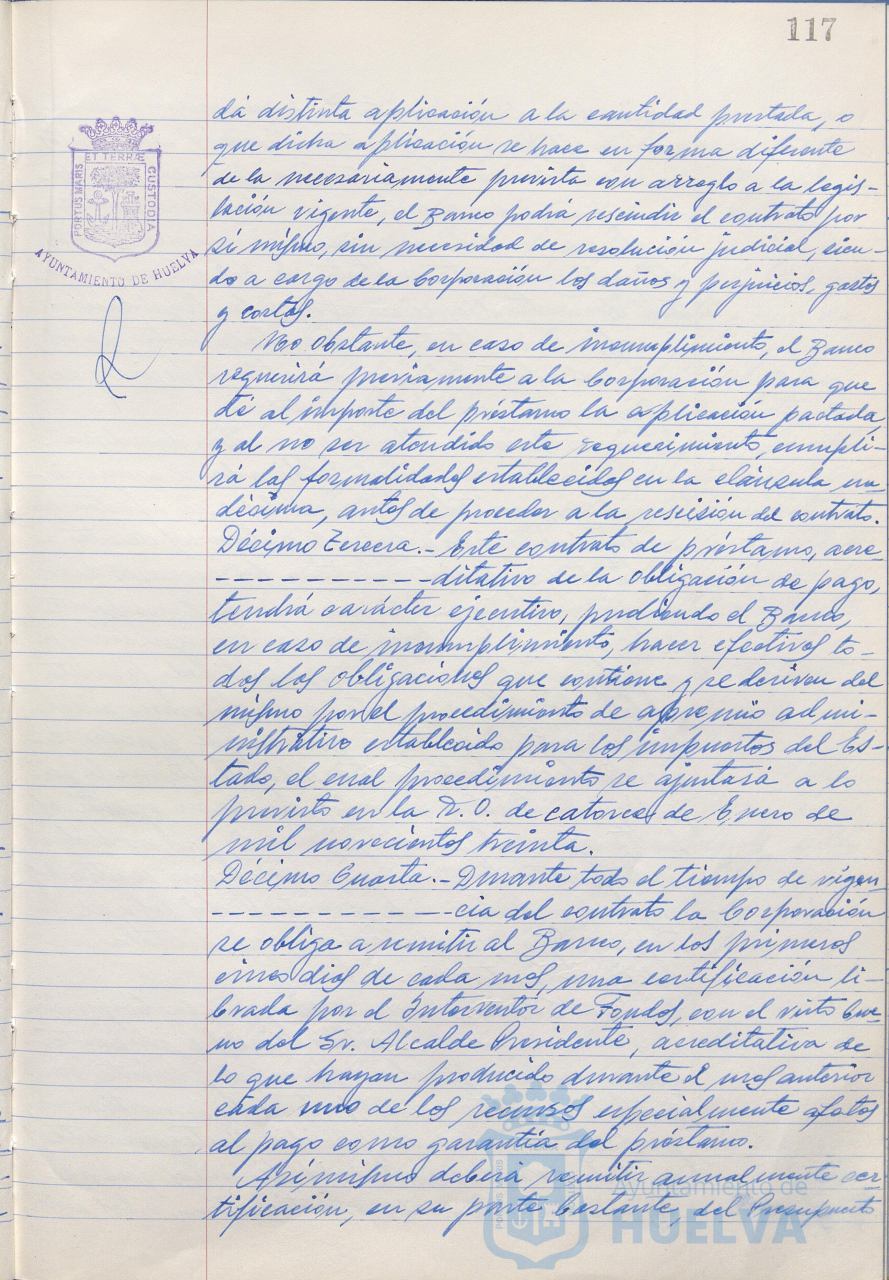 117
PORTUS MARIS
ET TERRÆ
CUSTODIA
AYUNTAMIENTO DE HUELVA
dá distinta aplicación a la cantidad prestada, o
que dicha aplicación se hace en forma diferente
de la necesariamente prevista con arreglo a la legis-
lación vigente, el Banco podrá rescindir el contrato por
sí mismo, sin necesidad de resolución judicial, sien-
do a cargo de la Corporación los daños y perjuicios, gastos
y costas.
No obstante, en caso de incumplimiento, el Banco
requerirá previamente a la Corporación para que
dé al importe del préstamo la aplicación pactada,
y al no ser atendido este requerimiento, cumpli-
rá las formalidades establecidas en la cláusula un-
décima, antes de proceder a la rescisión del contrato.
Décimo Tercera.- Este contrato de préstamo, acre-
-----------ditativo de la obligación de pago,
tendrá carácter ejecutivo, pudiendo el Banco,
en caso de incumplimiento, hacer efectivas to-
das las obligaciones que contiene y se deriven del
mismo por el procedimiento de apremio admi-
nistrativo establecido para los impuestos del Es-
tado, el cual procedimiento se ajustará a lo
previsto en la R. O. de catorce de Enero de
mil novecientos treinta.
Décimo Cuarta.- Durante todo el tiempo de vigen-
------------cia del contrato la Corporación
se obliga a remitir al Banco, en los primeros
cinco dias de cada mes, una certificación li-
brada por el Interventor de Fondos, con el visto bue-
no del Sr. Alcalde Presidente, acreditativa de
lo que hayan producido durante el mes anterior
cada uno de los recursos especialmente afectos
al pago como garantía del préstamo.
Asimismo deberá remitir anualmente cer-
tificación, en su parte bastante, del Presupuesto
Ayuntamiento de
HUELVA